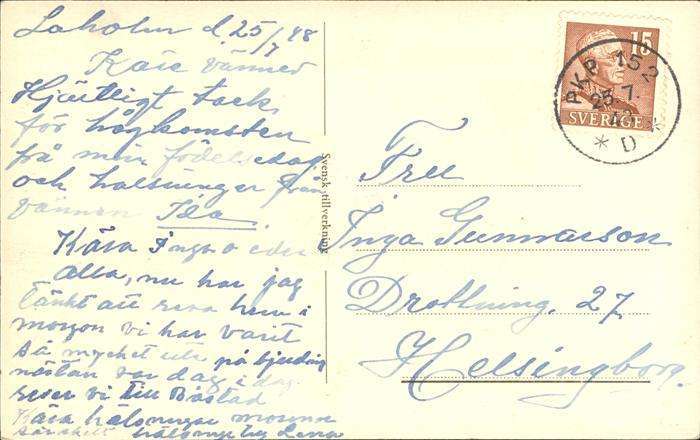 Laholm d. 25/7 48
Käre vänner
Hjärtligt tack
för hågkomsten
på min födelsedag
och halsninger från
vännen Ida
Kära Inga o eder
alla, nu har jag
tänkt att resa hem i
morgon vi har varit
så mycket ute på bjudnig
nästan var dag i dag
reser vi till Båstad
Kära halsningar
halsning
Svensk tillverkning
15
SVERIGE
PKP 152
25.7.
* D *
Fru
Inga Gunnarson
Drottning. 27
Helsingborg.